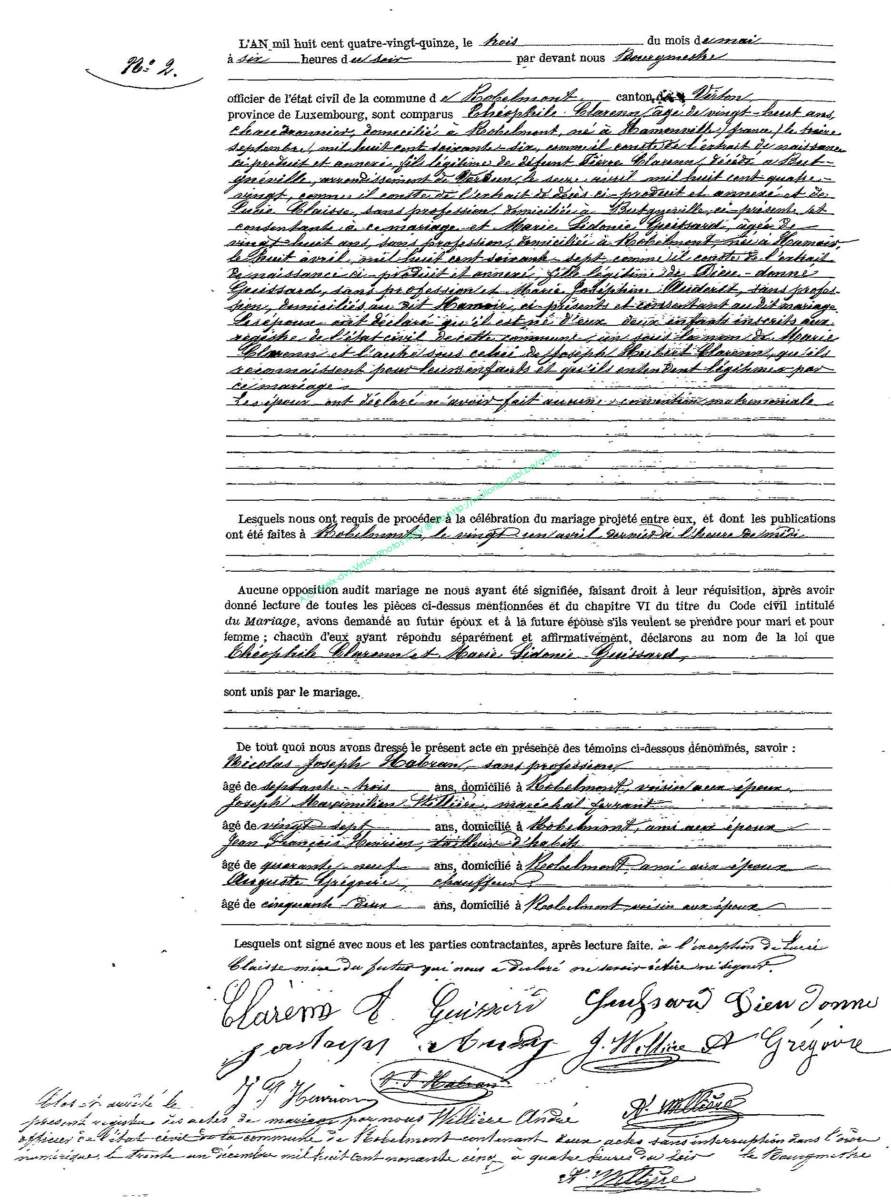 L'AN mil huit cent quatre-vingt-quinze, le trois du mois de mai
N° 2.
à six heures du soir par devant nous Bourgmestre
officier de l'état civil de la commune de Robelmont canton de Virton
province de Luxembourg, sont comparus Théophile Clarenn, âgé de vingt-huit ans,
chaudronnier, domicilié à Robelmont, né à Hamonville (france) le treize
septembre, mil huit cent soixante-six, comme il conste de l'extrait de naissance
ci-produit et annexé, fils légitime de défunt Pierre Clarenn, décédé à But-
gnéville, arrondissement de Verdun, le avril mil huit cent quatre-
vingt, comme il conste de l'extrait de décès ci-produit et annexé et de
Lucie Claisse, sans profession, domiciliée à Butgnéville, ci-présente et
consentante à ce mariage et Marie Sidonie Guissard, âgée de
vingt-huit ans, sans profession, domiciliée à Robelmont née à Hamoir
le huit avril, mil huit cent soixante-sept comme il conste de l'extrait
de naissance ci-produit et annexé, fille légitime de Dieu-donné
Guissard, sans profession et Marie Joséphine, sans profes-
sion, domiciliés au dit Hamoir, ci-présents et consentant au dit mariage.
Les époux ont déclaré qu'il est né d'eux deux enfants inscrits aux
registre de l'état civil de cette commune, un sous le nom de Marie
Clarenn et l'autre sous celui de Joseph Hubert Clarenn, qu'ils
reconnaissent pour leurs enfants et qu'ils entendent légitimer par
ce mariage.
Les époux ont déclaré n'avoir fait aucune convention matrimoniale
Lesquels nous ont requis de procéder à la célébration du mariage projeté entre eux, et dont les publications
ont été faites à Robelmont, le vingt un avril dernier à l'heure de midi
Aucune opposition audit mariage ne nous ayant été signifiée, faisant droit à leur réquisition, après avoir
donné lecture de toutes les pièces ci-dessus mentionnées et du chapitre VI du titre du Code civil intitulé
du Mariage, avons demandé au futur époux et à la future épouse s'ils veulent se prendre pour mari et pour
femme ; chacun d'eux ayant répondu séparément et affirmativement, déclarons au nom de la loi que
Théophile Clarenn et Marie Sidonie Guissard,
sont unis par le mariage.
De tout quoi nous avons dressé le présent acte en présence des témoins ci-dessous dénommés, savoir :
Nicolas Joseph Habran, sans profession,
âgé de septante-trois ans, domicilié à Robelmont, voisin aux époux,
Joseph Maximilien Willière, maréchal ferrant
âgé de vingt sept ans, domicilié à Robelmont, ami aux époux
Jean François Henrion, tailleur d'habits
âgé de quarante-neuf ans, domicilié à Robelmont, ami aux époux
Auguste Grégoire, chauffeur,
âgé de cinquante-deux ans, domicilié à Robelmont voisin aux époux
Lesquels ont signé avec nous et les parties contractantes, après lecture faite. à l'exception de Lucie
Claisse mère du futur qui nous a déclaré ne savoir écrire ni signer.
Clarenn T. Guissard Guissard Dieudonné
J. Willière A Grégoire
J F Henrion N. J Habran
A. Willière
Clos et arrêté le
présent registre des actes de mariage par nous Willière André
officier de l'état civil de la commune de Robelmont contenant deux actes sans interruption dans l'ordre
numérique, le trente un décembre mil huit cent nonante cinq à quatre heures du soir le Bourgmestre
A. Willière